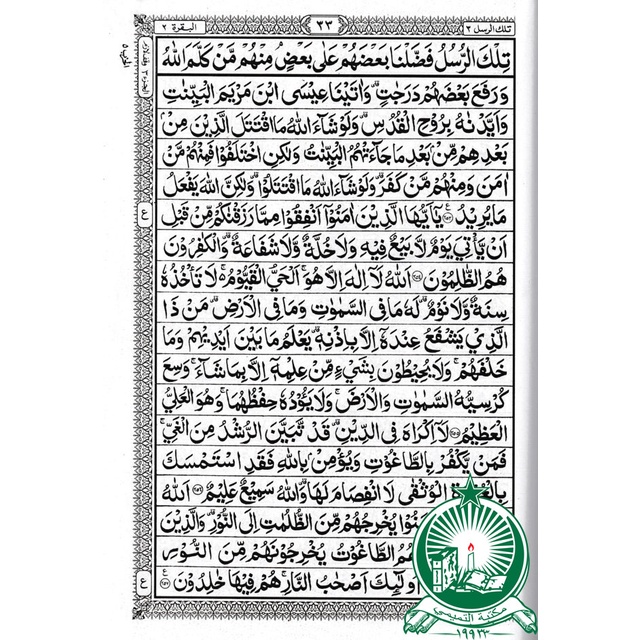 تلك الرسل ٣
٣٣
البقرة ٢
تِلْكَ الرُّسُلُ فَضَّلْنَا بَعْضَهُمْ عَلٰی بَعْضٍ مِنْهُمْ مَّنْ كَلَّمَ اللّٰهُ
وَرَفَعَ بَعْضَهُمْ دَرَجٰتٍ وَاٰتَيْنَا عِيْسَی ابْنَ مَرْيَمَ الْبَيِّنٰتِ
وَاَيَّدْنٰهُ بِرُوْحِ الْقُدُسِ وَلَوْ شَآءَ اللّٰهُ مَا اقْتَتَلَ الَّذِيْنَ مِنْۢ
بَعْدِهِمْ مِّنْۢ بَعْدِ مَا جَآءَتْهُمُ الْبَيِّنٰتُ وَلٰكِنِ اخْتَلَفُوْا فَمِنْهُمْ مَّنْ
اٰمَنَ وَمِنْهُمْ مَّنْ كَفَرَ وَلَوْ شَآءَ اللّٰهُ مَا اقْتَتَلُوْا وَلٰكِنَّ اللّٰهَ يَفْعَلُ
مَا يُرِيْدُ ﴿٢٥٣﴾ يٰٓاَيُّهَا الَّذِيْنَ اٰمَنُوْٓا اَنْفِقُوْا مِمَّا رَزَقْنٰكُمْ مِّنْ قَبْلِ
اَنْ يَّاْتِيَ يَوْمٌ لَّا بَيْعٌ فِيْهِ وَلَا خُلَّةٌ وَّلَا شَفَاعَةٌ وَالْكٰفِرُوْنَ
هُمُ الظّٰلِمُوْنَ ﴿٢٥٤﴾ اَللّٰهُ لَآ اِلٰهَ اِلَّا هُوَ اَلْحَيُّ الْقَيُّوْمُ لَا تَاْخُذُهٗ
سِنَةٌ وَّلَا نَوْمٌ لَهٗ مَا فِي السَّمٰوٰتِ وَمَا فِي الْاَرْضِ مَنْ ذَا
الَّذِيْ يَشْفَعُ عِنْدَهٗٓ اِلَّا بِاِذْنِهٖ يَعْلَمُ مَا بَيْنَ اَيْدِيْهِمْ وَمَا
خَلْفَهُمْ وَلَا يُحِيْطُوْنَ بِشَيْءٍ مِّنْ عِلْمِهٖٓ اِلَّا بِمَا شَآءَ وَسِعَ
كُرْسِيُّهُ السَّمٰوٰتِ وَالْاَرْضَ وَلَا يَـُٔوْدُهٗ حِفْظُهُمَا وَهُوَ الْعَلِيُّ
الْعَظِيْمُ ﴿٢٥٥﴾ لَآ اِكْرَاهَ فِي الدِّيْنِ قَدْ تَّبَيَّنَ الرُّشْدُ مِنَ الْغَيِّ
فَمَنْ يَّكْفُرْ بِالطَّاغُوْتِ وَيُؤْمِنْۢ بِاللّٰهِ فَقَدِ اسْتَمْسَكَ
بِالْعُرْوَةِ الْوُثْقٰی لَا انْفِصَامَ لَهَا وَاللّٰهُ سَمِيْعٌ عَلِيْمٌ ﴿٢٥٦﴾ اَللّٰهُ
اٰمَنُوْا يُخْرِجُهُمْ مِّنَ الظُّلُمٰتِ اِلَی النُّوْرِ وَالَّذِيْنَ
هُمُ الطَّاغُوْتُ يُخْرِجُوْنَهُمْ مِّنَ النُّوْرِ
اُولٰٓئِكَ اَصْحٰبُ النَّارِ هُمْ فِيْهَا خٰلِدُوْنَ ﴿٢٥٧﴾
ع
ع
مكتبة التميمي